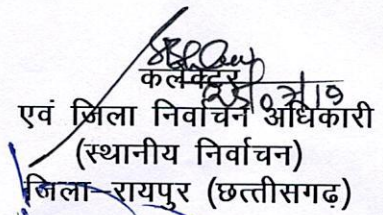 कलेक्टर
25/07/19
एवं जिला निर्वाचन अधिकारी
(स्थानीय निर्वाचन)
जिला-रायपुर (छत्तीसगढ़)